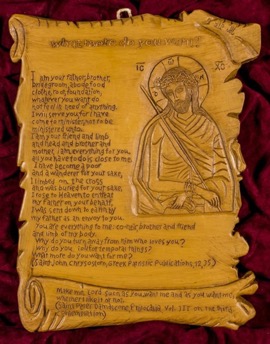 IC XC
I am your father, brother,
bridegroom, abode food
clothero, root, foundation,
whatever you want do
not feel in need of anything.
I will serve you for I have
come to minister not to be
ministered unto.
I am your friend and limb
and head and brother and
mother, I am everything for you,
all you have to do is close to me,
I have become a poor
and a wanderer for your sake,
I climbed on the cross
and was buried for your sake,
I rose to Heaven to entreat
my Father on your behalf.
I was sent down to earth by
my Father as an envoy to you.
You are everything to me: co-heir brother and friend
and limb of my body.
Why do you turn away from him who loves you?
Why do you toil for temporal things?
What more do you want for me?
(Saint John Chrysostom, Greek Patristic Publications, 12, 35)
Make me, Lord such as you want me and as you want me,
whether I like it or not.